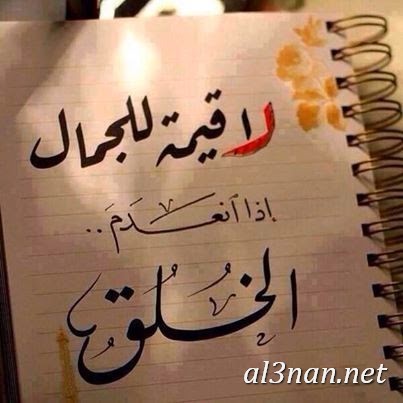 لا قيمة للجمال
إذا ٱنعدَمَ..
الخُلُق
al3nan.net